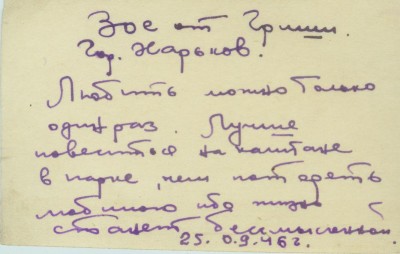 Зое от Гриши.
Гор. Харьков.
Любить можно только
один раз. Лучше
повеситься на каштане
в парке, чем потерять
любимого ибо жизнь
станет бессмысленной.
25.09.46 г.